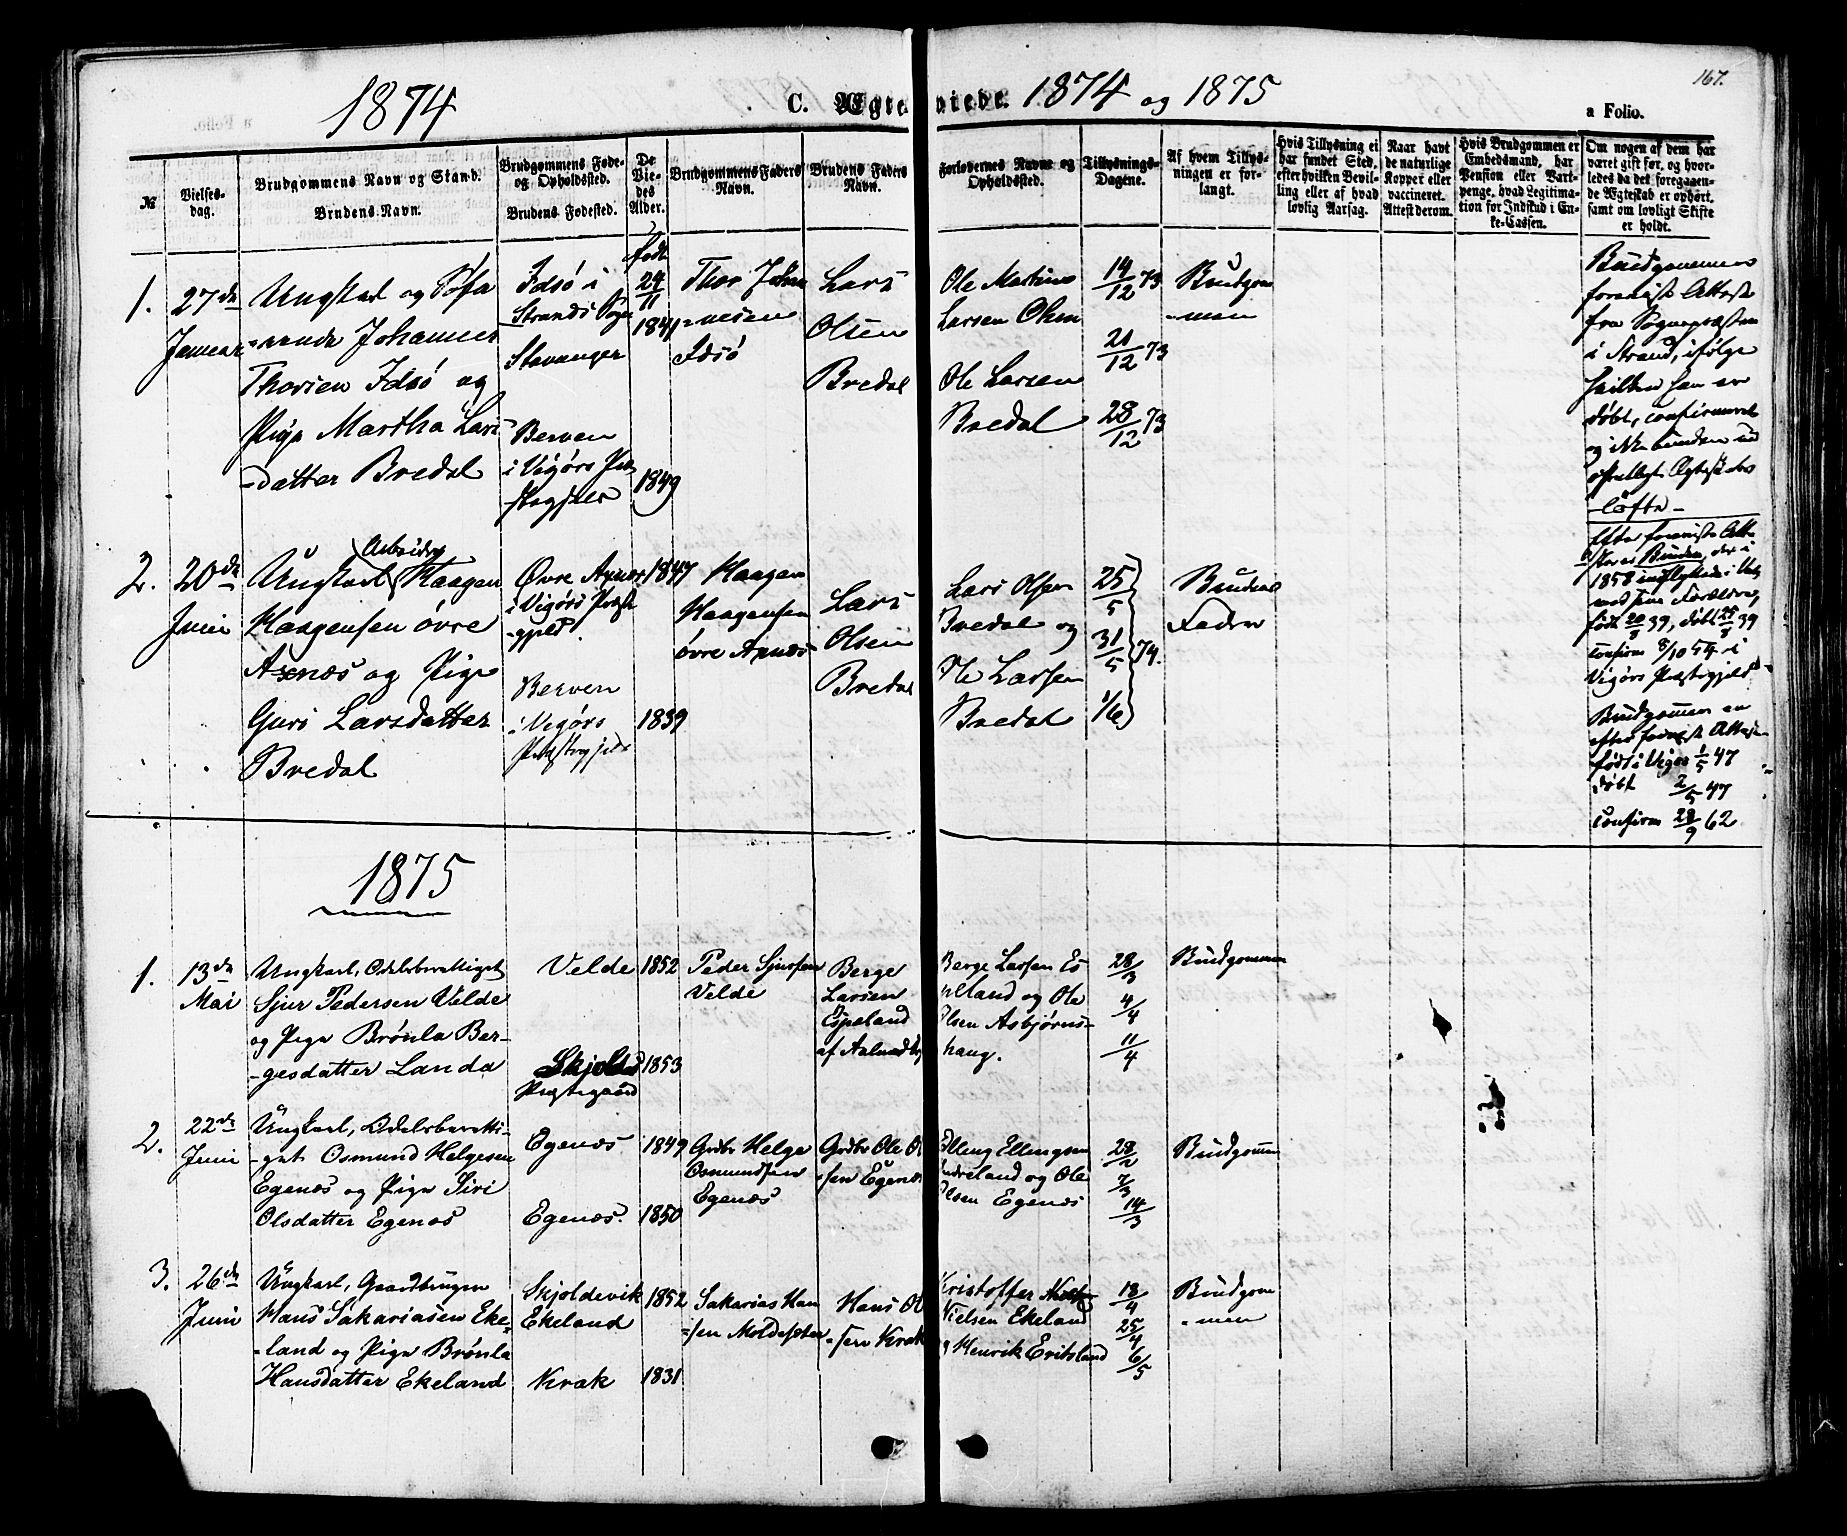 167.
1874
C. Ægteviede.
1874 og 1875
a Folio.
№
Vielses-
dag.
Brudgommens Navn og Stand.
Brudens Navn.
Brudgommens Føde-
og Opholdssted.
Brudens Fødested.
De
Vie-
des
Alder.
Brudgommens Faders
Navn.
Brudens Faders
Navn.
Forlovernes Navne og
Opholdssted.
Tillysnings-
Dagene.
Af hvem Tillys-
ningen er for-
langt.
Hvis Tillysning ei
har fundet Sted,
efter hvilken Bevil-
ling eller af hvad
lovlig Aarsag.
Naar havt
de naturlige
Kopper eller
vaccineret.
Attest derom.
Hvis Brudgommen er
Embedsmand, har
Pension eller Vart-
penge, hvad Legitima-
tion for Indskud i En-
ke-Cassen.
Om nogen af dem har
været gift før, og hvor-
ledes da det foregaaen-
de Ægteskab er ophørt,
samt om lovligt Skifte
er holdt.
1.
27de
Januar
Ungkarl og Søfa
-rende Johannes
Thorsen Idsø og
Pige Martha Lars
-datter Bredal
Idsø i
Strands Sogn
Stavanger
Berven
i Vigørs Præ
-stegjeld
født
24/11
1841
1849
Thor Johan
-nesen
Idsø
Lars
Olsen
Bredal
Ole Martinus
Larsen Ohm
Ole Larsen
Bredal
14/12 73
21/12 73
28/12 73
Brudgom
-men
Brudgommens
foreviste Attest
fra Sognepræsten
i Strand, ifølge
hvilken han er
døbt, confirmeret
og ikke bunden ved
offentligt Ægteskabs
-løfte-
2.
20de
Juni
Ungkarl Arbeider Haagen
Haagensen øvre
Axnæs og Pige
Guri Larsdatter
Bredal
Øvre Axnæs
i Vigørs Præste
-gjeld.
Berven
i Vigørs
Præstegjeld
1847
1839
Haagen
Haagensen
øvre Axnæs
Lars
Olsen
Bredal
Lars Olsen
Bredal og
Ole Larsen
Bredal
25/5
31/5 74.
1/6
Brudens
Fader
Efter foreviste Atte
ster er Bruden, der i
1858 indflyttede i
med sine Forældre,
født 20/8 39, døbt 25/8 39
confirm 8/10 54 i
Vigørs Præstegjeld-
Brudgommen er
efter forevist Attest
født i Vigør 1/5 47
døbt 2/5 47
confirm 28/9 62
1875
1.
13de
Mai
Ungkarl, Odelsberettiget
Sjur Pedersen Velde
og Pige Brønla Ber-
-gesdatter Landa
Velde
Skjolds
Præstegaard
1852
1853
Peder Sjursen
Velde
Berge
Larsen
Espeland
af
Berge Larsen Es
peland og Ole
Olsen Asbjørns-
haug.
28/3
4/4
11/4
Brudgommen
2.
22de
Juni
Ungkarl, Odelsberetti-
-get Osmund Helgesen
Egenæs og Pige Siri
Olsdatter Egenæs
Egenæs
Egenæs.
1849
1850
Grdbr Helge
Osmundsen
Egenæs
Grdbr Ole Ol
-sen Egenæs
Elling Ellingsen
Indreland og Ole
Olsen Egenæs
28/2
7/3
14/3
Brudgommen
3.
26de
Juni
Ungkarl, Gaardbruger
Hans Sakariasen Eke-
-land og Pige Brønla
Hansdatter Ekeland
Skjoldevik
Ekeland
Krak
1852
1831
Sakarias Han
-sen Moldesæter
Hans Ol
-sen Krak
Kristoffer
Nielsen Ekeland
og Henrik Eriksland
18/4
25/4
6/5
Brudgom
-men